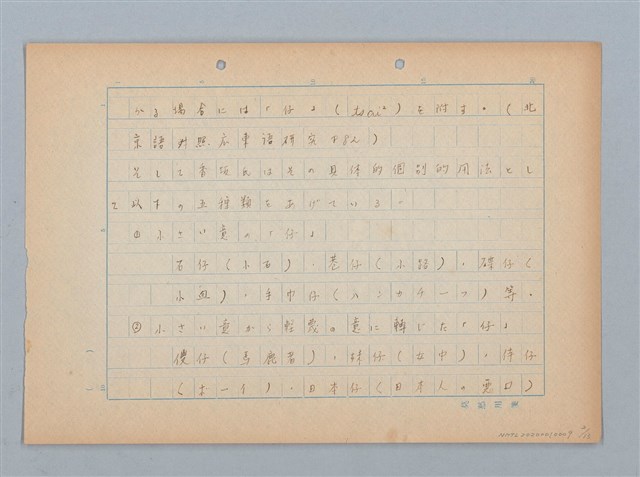 る場合には「仔」( tsai² )を附す。(北
京語対照広東語研究 P82)
そして香坂氏はその具体的個別的用法とし
て以下の五種類をあげている。
① 小さい意の「仔」
石仔(小石)、巷仔(小路)、碟仔(
小皿)、手巾仔(ハンカチーフ)等。
② 小さい意から軽蔑の意に轉じた「仔」
傻仔(馬鹿者)、妹仔(女中)、仔
(ボーイ)、日本仔(日本人の悪口)